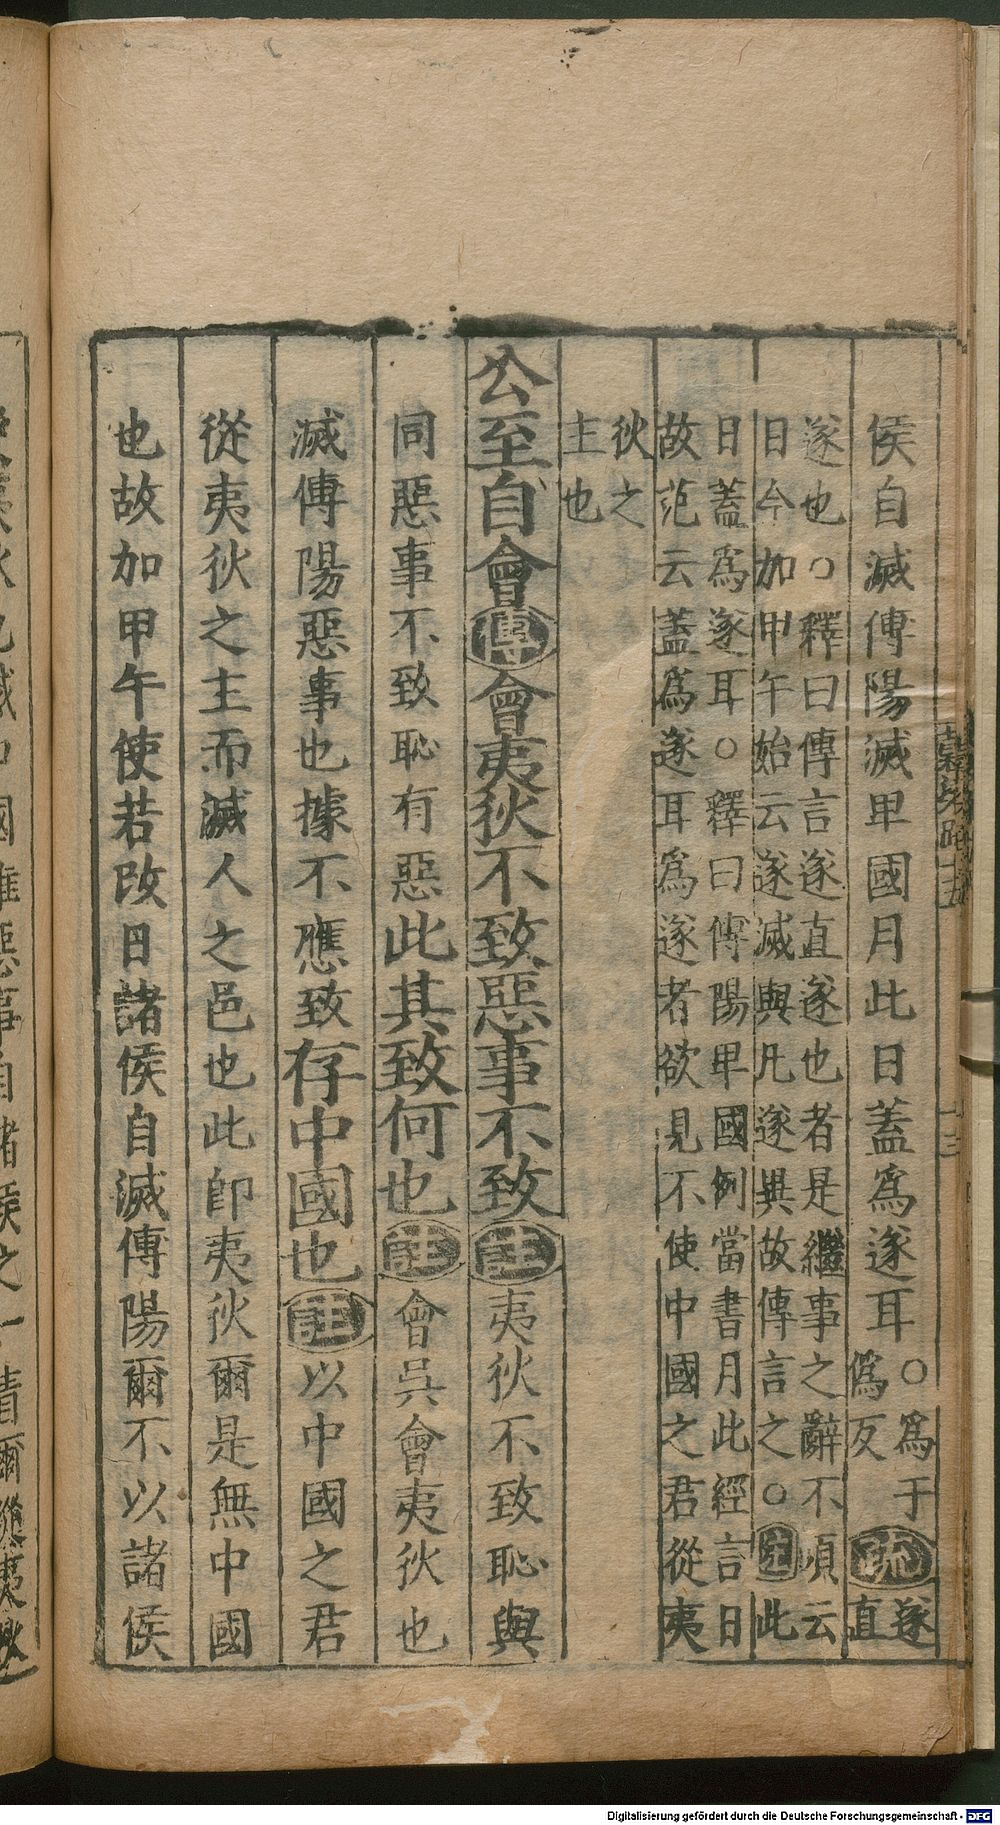 侯自滅傅陽滅卑國月此日蓋為遂耳○為于偽反疏遂直
遂也○釋曰傳言遂直遂也者是繼事之辭不須云
日今加甲午始云遂滅與凡遂異故傳言之○注此
日蓋為遂耳○釋曰傅陽卑國例當書月此經言日
故范云蓋為遂耳為遂者欲見不使中國之君從夷
狄之
主也
公至自會傳會夷狄不致惡事不致註夷狄不致恥與
同惡事不致恥有惡此其致何也註會吳會夷狄也
滅傅陽惡事也據不應致存中國也註以中國之君
從夷狄之主而滅人之邑也此即夷狄爾是無中國
也故加甲午使若改日諸侯自滅傅陽爾不以諸侯
Digitalisierung gefördert durch die Deutsche Forschungsgemeinschaft - DFG